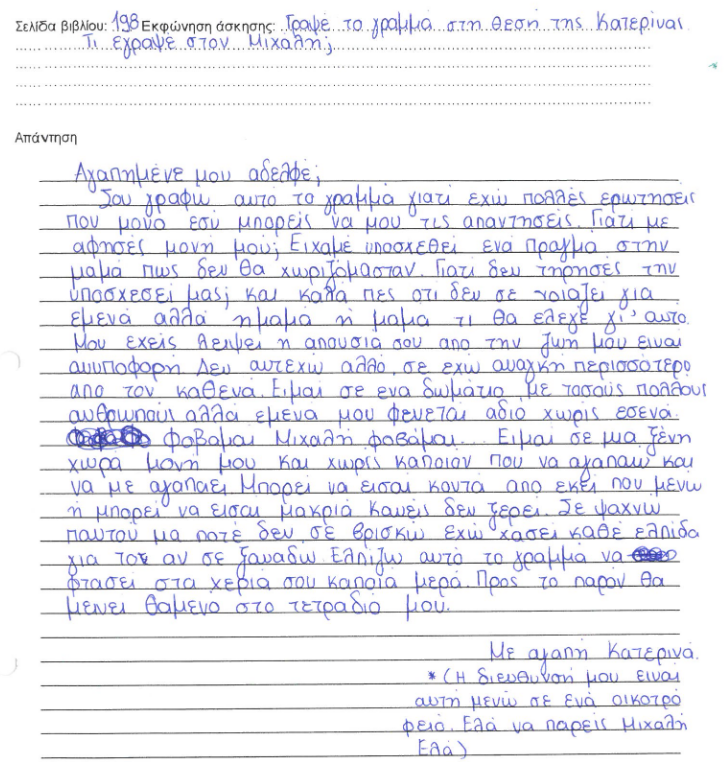 Σελίδα βιβλίου: 198 Εκφώνηση άσκησης: Γραψε το γραμμα στη θεση της Κατερινας
Τι εγραψε στον Μιχαλη;
Απάντηση
Αγαπημένε μου αδελφέ,
Σου γραφω αυτό το γραμμά γιατί εχώ πολλές ερωτησείς
που μονο εσυ μπορείς να μου τις απαντησείς. Γιατί με
αφησές μονή μού; Ειχαμέ υποσχεθεί ενά πραγμα στην
μαμά πως δεν θα χωριζόμασταν. Γιατι δεν τηρησές την
υποσχεσεί μας; και καλα πες οτι δεν σε νοιαζεί για
εμενά αλλά ημαμά ή μαμα τι θα ελεγε γι' αυτο.
Μου εχείς λειψει η απουσια σου απο την ζωη μου ειναι
ανυποφορη. Δεν αντεχώ αλλο, σε εχω αναγκη περισσότερο
απο τον καθενά. Ειμαι σε ενα δωμάτιο με τοσούς πολλους
ανθρωπούς αλλα εμενα μου φενεται αδιο χωρίς εσενά.
Φοβάμαι Μιχαλή φοβάμαι... Ειμαι σε μια ξένη
χωρα μονή μου και χωρίς καποιον που να αγαπαω και
να με αγαπαει. Μπορεί να εισαι κοντα απο εκεί που μένω
ή μπορεί να εισαι μακριά κανείς δεν ξερει. Σε ψαχνω
παντού μα ποτέ δεν σε βρισκω εχώ χασεί καθέ ελπίδα
για τον αν σε ξαναδω. Ελπιζω αυτό το γραμμα να
φτασει στα χερια σου καποία μερά. Προς το παρον θα
μενει θαμενο στο τετραδίο μου.
Με αγαπη Κατερινά.
* (Η διευθυνσή μου ειναι
αυτή μενώ σε ενά οικοτρο
φειό. Ελά να παρείς Μιχαλή
Ελά)